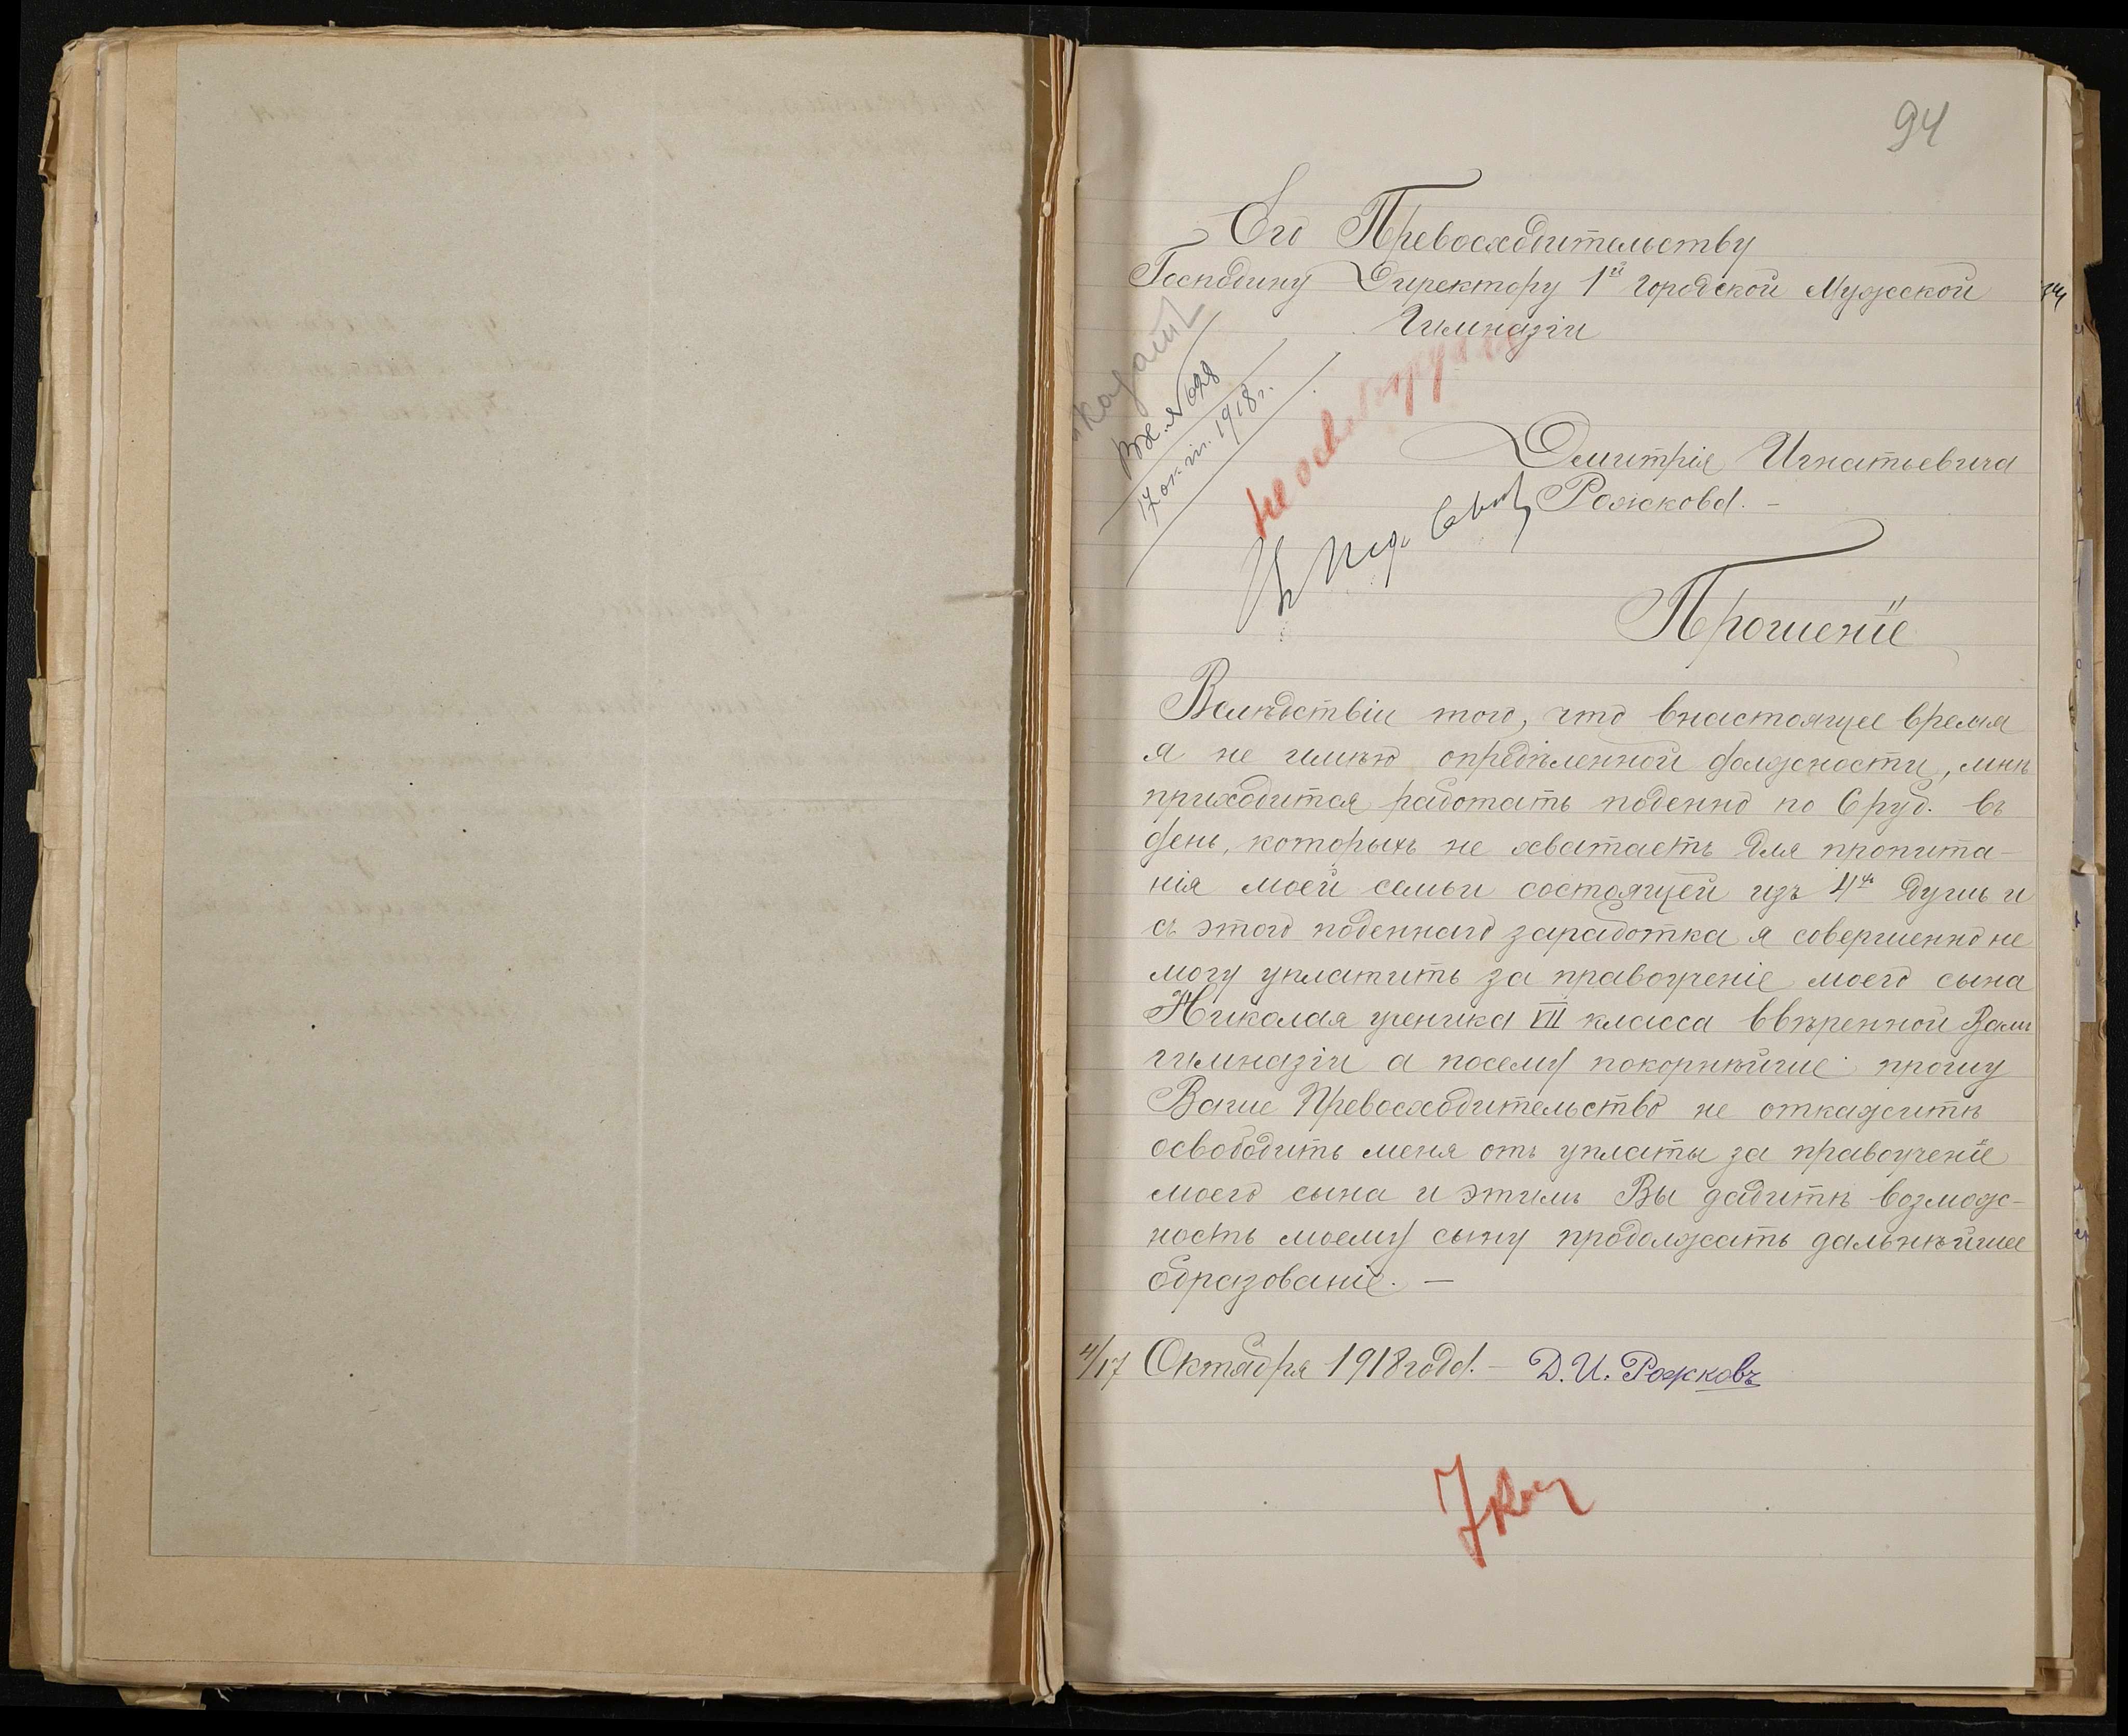 94
Его Превосходительству
Господину Директору 1й Городской Мужской
Гимназіи
Вх. № 698
17 окт. 1918 г.
не освобожд
Къ Пед. Совѣт
Дмитрія Игнатьевича
Рожкова. –
Прошеніе
Вслѣдствіи того, что внастоящее время
я не имѣю опредѣленной должности, мнѣ
приходится работать поденно по 6 руб. въ
день, которыхъ не хватаетъ для пропита-
нія моей семьи состоящей изъ 4хъ душъ и
съ этого поденнаго заработка я совершенно не
могу уплатить за правоученіе моего сына
Николая ученика VII класса ввѣренной Вами
гимназіи а посему покорнѣйше прошу
Ваше Превосходительство не откажитѣ
освободить меня отъ уплаты за правоученіе
моего сына и этимъ Вы дадитѣ возмож-
ность моему сыну продолжать дальнѣйшее
образованіе. –
4/17 Октября 1918 года. – Д. И. Рожковъ